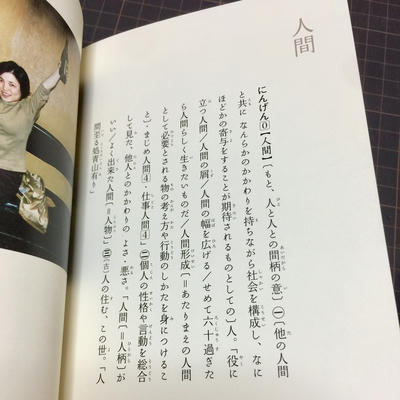 人間
にんげん⓪【人間】〔もと、人と人との間柄の意〕㊀〔他の人間
と共に なんらかのかかわりを持ちながら社会を構成し、なに
ほどかの寄与をすることが期待されるものとしての〕人。「役に
立つ人間/人間の屑/人間の幅を広げる/せめて六十過ぎた
ら人間らしく生きたいものだ/人間形成〔=あたりまえの人間
として必要とされる物の考え方や行動のしかたを身につけるこ
と〕・まじめ人間④・仕事人間④」㊁個人の性格や言動を総合
して見た、他人とのかかわりの よさ・悪さ。「人間〔=人柄〕が
いい/よく出来た人間〔=人物〕」㊂〔古〕人の住む、この世。「人
間至る処青山有り」